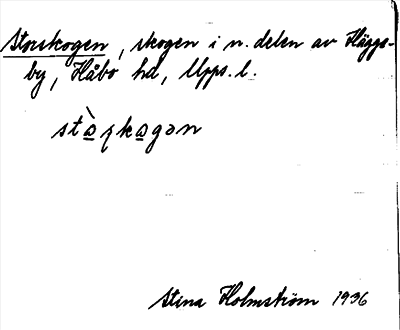 Storskogen, skogen i n. delen av Häggs-
by, Håbo hd, Upps. l.
stàʂkagən
Stina Holmström 1936